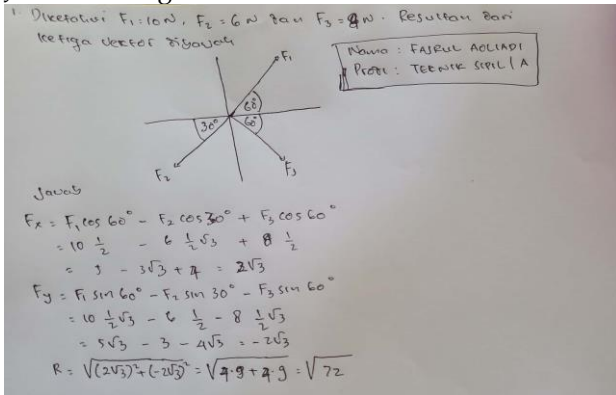 1. Diketahui F₁ = 10 N, F₂ = 6 N dan F₃ = 8 N. Resultan dari
ketiga vektor dibawah
Nama : FAJRUL AOLIADI
Prodi : TEKNIK SIPIL / A
F₁
60°
30°
60°
F₂
F₃
Jawab
Fx = F₁ cos 60° - F₂ cos 30° + F₃ cos 60°
= 10 1/2 - 6 1/2 √3 + 8 1/2
= - 3√3 + 4 = 2√3
Fy = F₁ sin 60° - F₂ sin 30° - F₃ sin 60°
= 10 1/2 √3 - 6 1/2 - 8 1/2 √3
= 5√3 - 3 - 4√3 = -2√3
R = √(2√3)² + (-2√3)² = √4·9 + 4·9 = √72